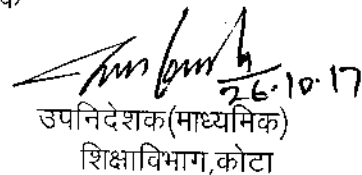 26.10.17
उपनिदेशक(माध्यमिक)
शिक्षाविभाग,कोटा